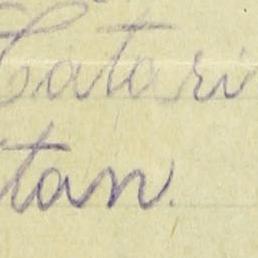 Catari
tan.